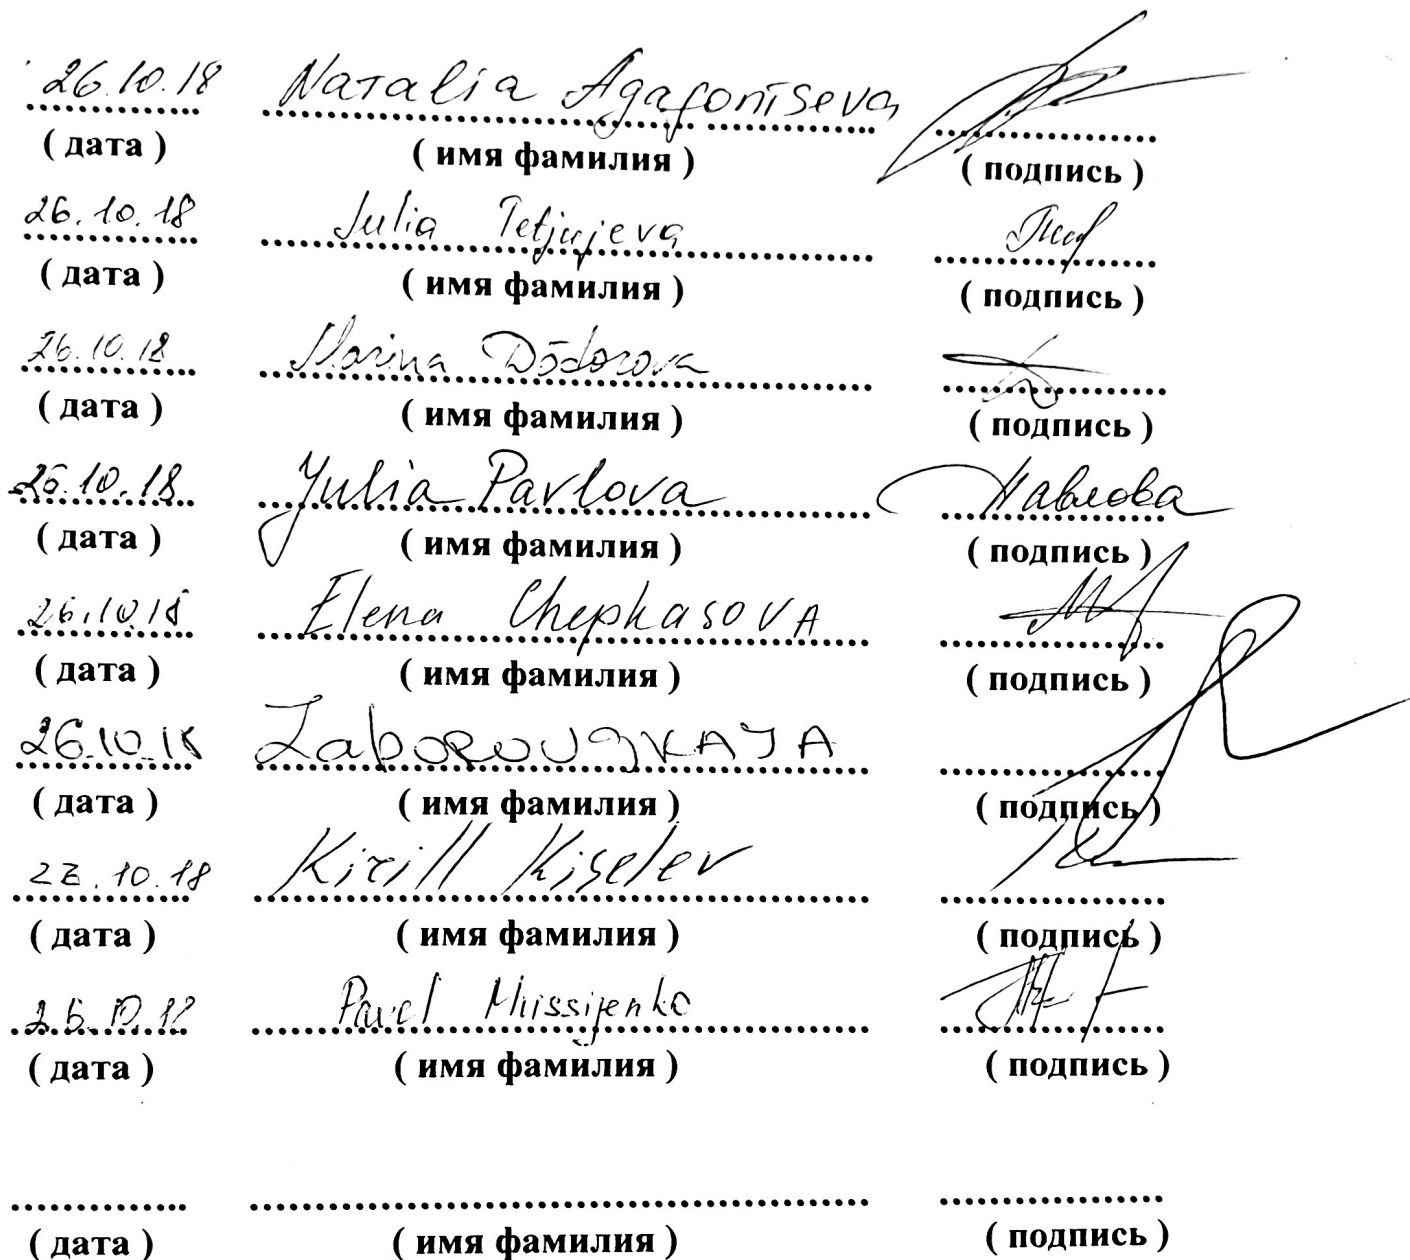 26.10.18 Natalia Agafontseva
( дата ) ( имя фамилия ) ( подпись )
26.10.18 Julia Tetjujeva
( дата ) ( имя фамилия ) ( подпись )
26.10.18 Marina Dōdorova
( дата ) ( имя фамилия ) ( подпись )
26.10.18 Yulia Pavlova Павлова
( дата ) ( имя фамилия ) ( подпись )
26.10.18 Elena ChephasovA
( дата ) ( имя фамилия ) ( подпись )
26.10.18
( дата ) ( имя фамилия ) ( подпись )
26.10.18 Kirill Kiselev
( дата ) ( имя фамилия ) ( подпись )
26.10.18 Pavel Missijenko
( дата ) ( имя фамилия ) ( подпись )
( дата ) ( имя фамилия ) ( подпись )